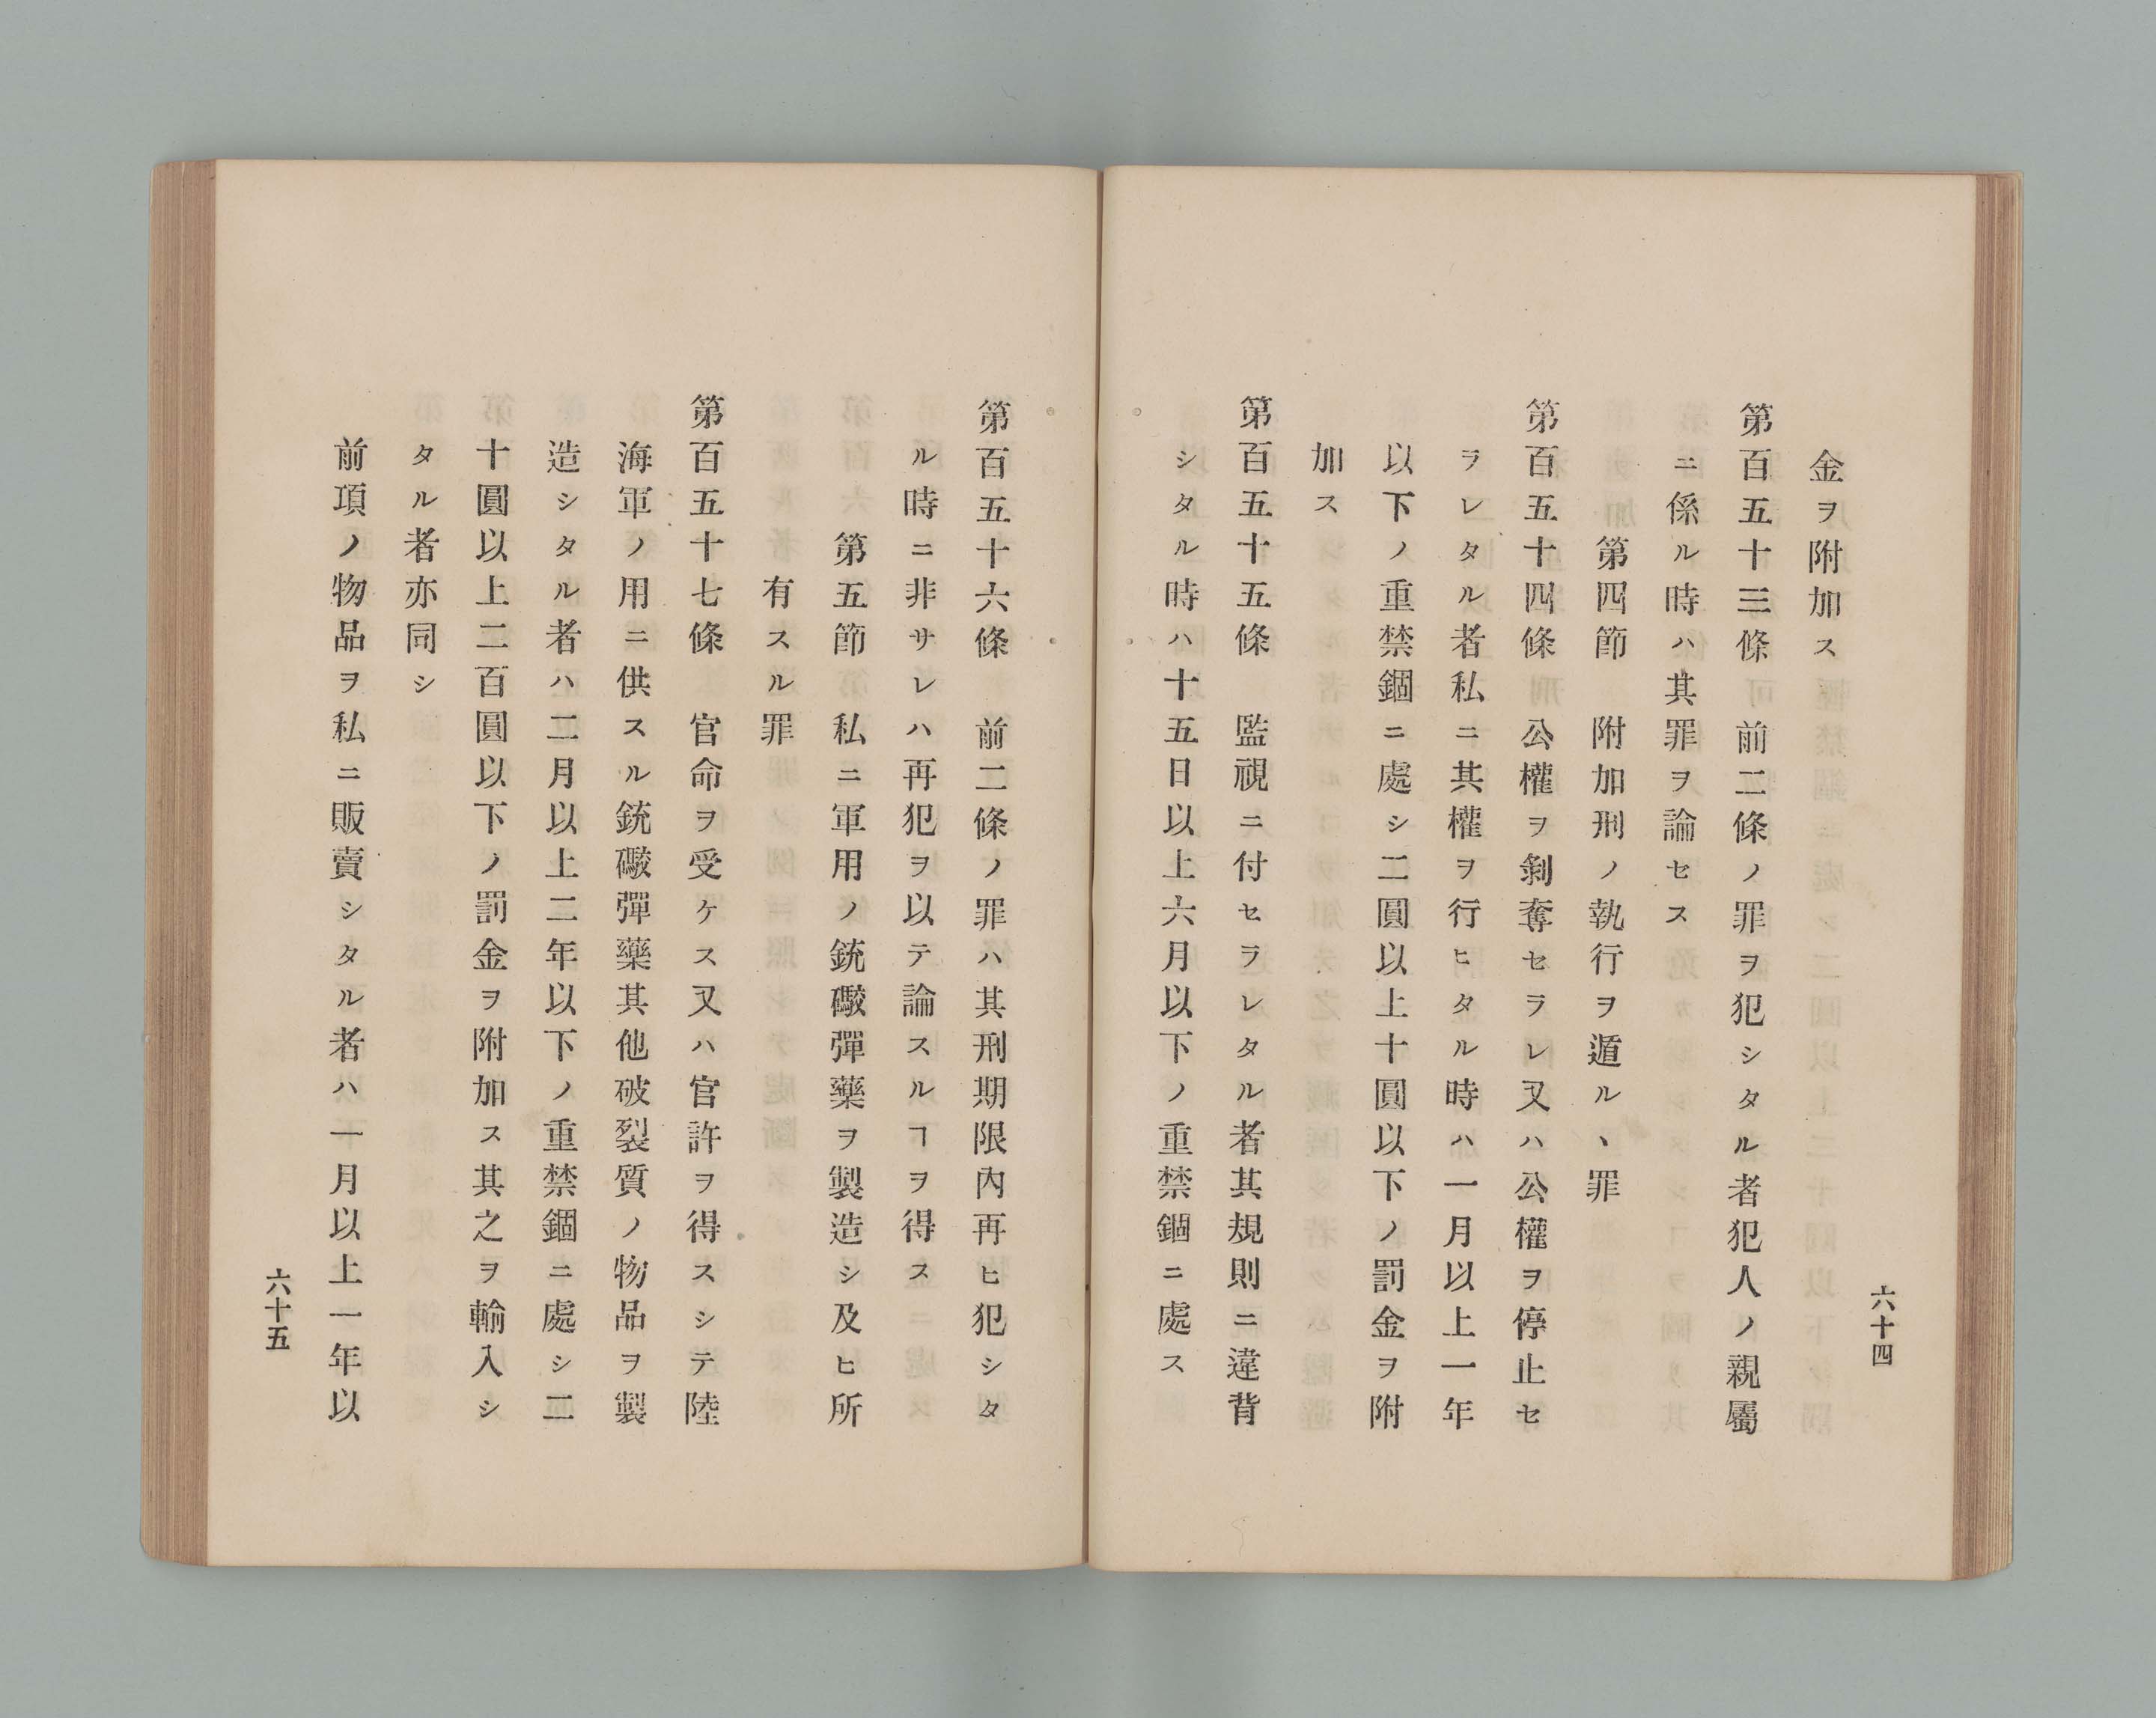 金ヲ附加ス
第百五十三條　前二條ノ罪ヲ犯シタル者犯人ノ親屬
ニ係ル時ハ其罪ヲ論セス
第四節　附加刑ノ執行ヲ遁ルヽ罪
第百五十四條　公權ヲ剝奪セラレ又ハ公權ヲ停止セ
ラレタル者私ニ其權ヲ行ヒタル時ハ一月以上一年
以下ノ重禁錮ニ處シ二圓以上十圓以下ノ罰金ヲ附
加ス
第百五十五條　監視ニ付セラレタル者其規則ニ違背
シタル時ハ十五日以上六月以下ノ重禁錮ニ處ス
六十四
第百五十六條　前二條ノ罪ハ其刑期限內再ヒ犯シタ
ル時ニ非サレハ再犯ヲ以テ論スルヿヲ得ス
第五節　私ニ軍用ノ銃礮彈藥ヲ製造シ及ヒ所
有スル罪
第百五十七條　官命ヲ受ケス又ハ官許ヲ得スシテ陸
海軍ノ用ニ供スル銃礮彈藥其他破裂質ノ物品ヲ製
造シタル者ハ二月以上二年以下ノ重禁錮ニ處シ二
十圓以上二百圓以下ノ罰金ヲ附加ス其之ヲ輸入シ
タル者亦同シ
前項ノ物品ヲ私ニ販賣シタル者ハ一月以上一年以
六十五